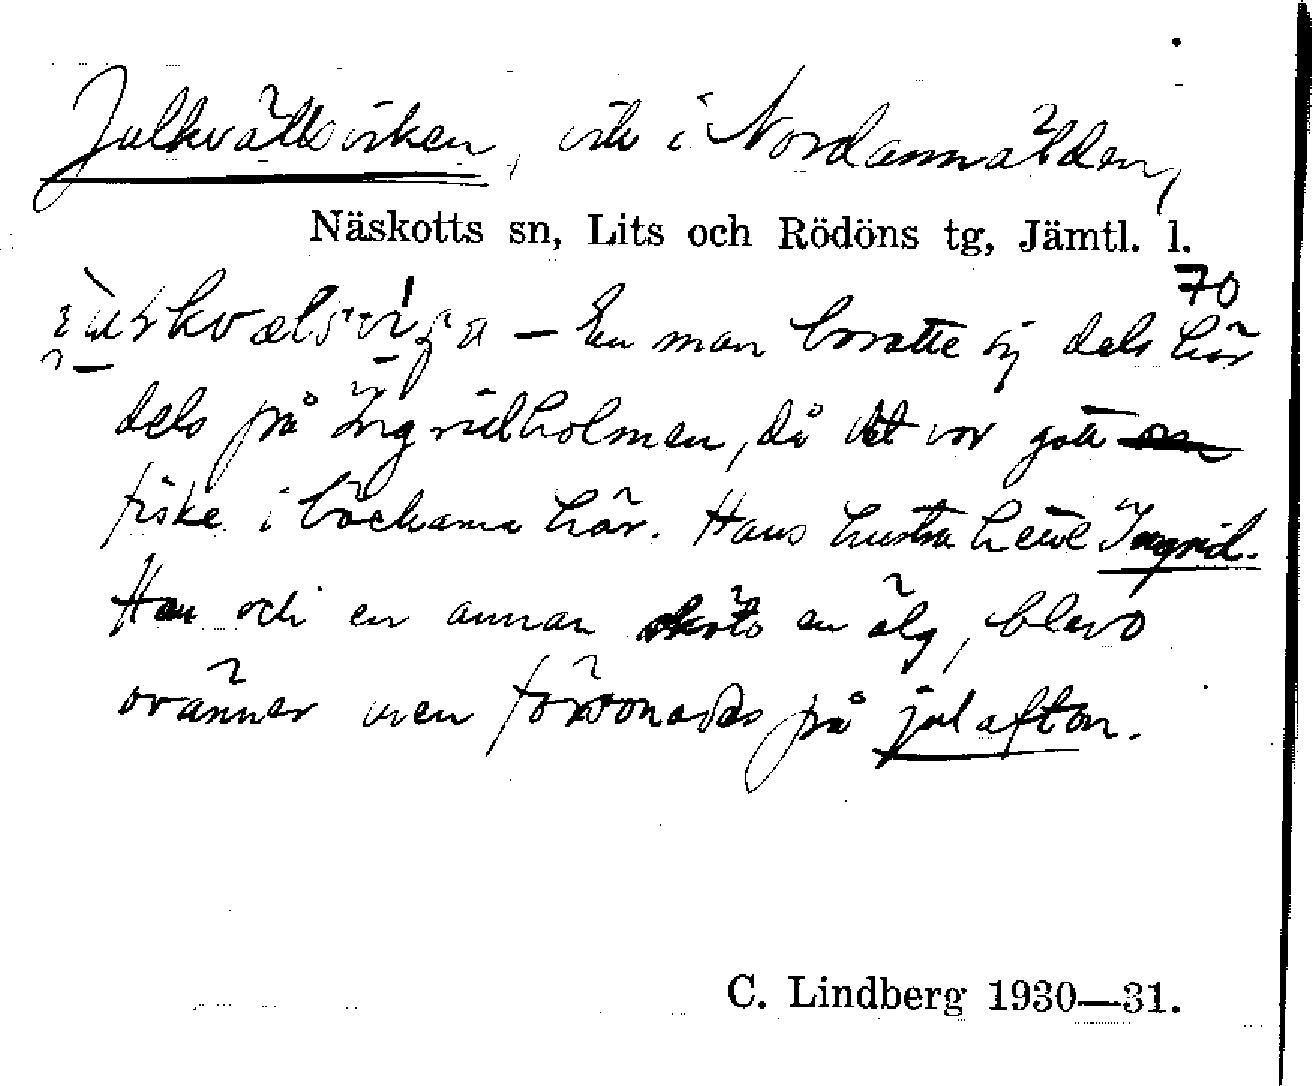 Julkvällsviken, vik i Nordannälden,
Näskotts sn, Lits och Rödöns tg, Jämtl. l.
70
– En man bosatte sig dels här
dels på Ingridholmen, då det var gott
fiske i bäckarna här. Hans hustru hette Ingrid.
Han och en annan sköto en älg, blevo
ovänner men försonades på julafton.
C. Lindberg 1930—31.